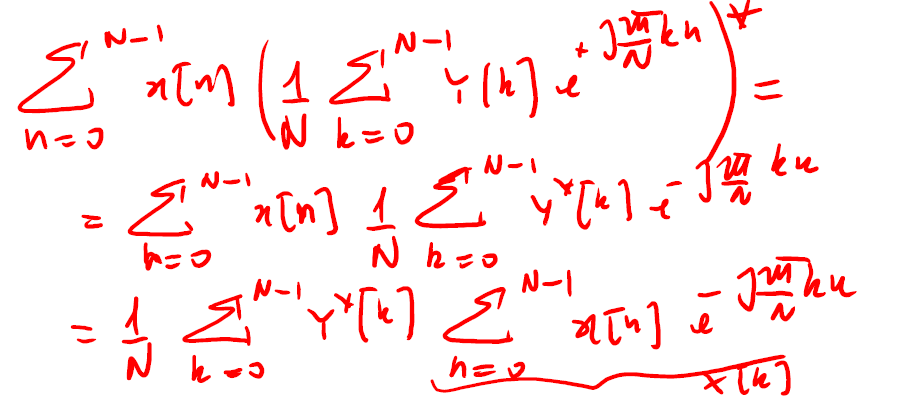 \sum_{n=0}^{N-1} x[n] \left( \frac{1}{N} \sum_{k=0}^{N-1} Y[k] e^{+j\frac{2\pi}{N}kn} \right)^* =
= \sum_{n=0}^{N-1} x[n] \frac{1}{N} \sum_{k=0}^{N-1} Y^*[k] e^{-j\frac{2\pi}{N}kn}
= \frac{1}{N} \sum_{k=0}^{N-1} Y^*[k] \sum_{n=0}^{N-1} x[n] e^{-j\frac{2\pi}{N}kn}
X[k]